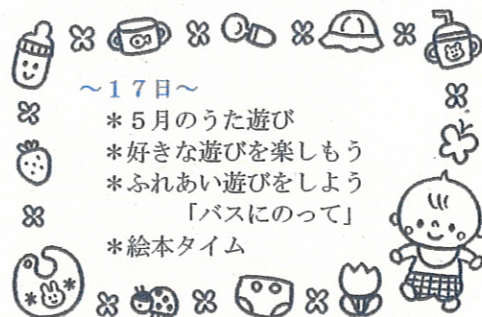 ～１７日～
＊５月のうた遊び
＊好きな遊びを楽しもう
＊ふれあい遊びをしよう
「バスにのって」
＊絵本タイム